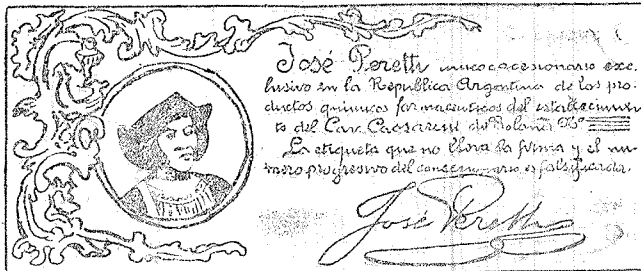 José Peretti unico cesionario exc-
lusivo en la República Argentina de los pro-
ductos quimicos farmaceuticos del establecimien-
to del Cav. de Bolonia Nº
La etiqueta que no lleva la firma y el nu-
mero progresivo del concesionario es falsificada.
José Peretti